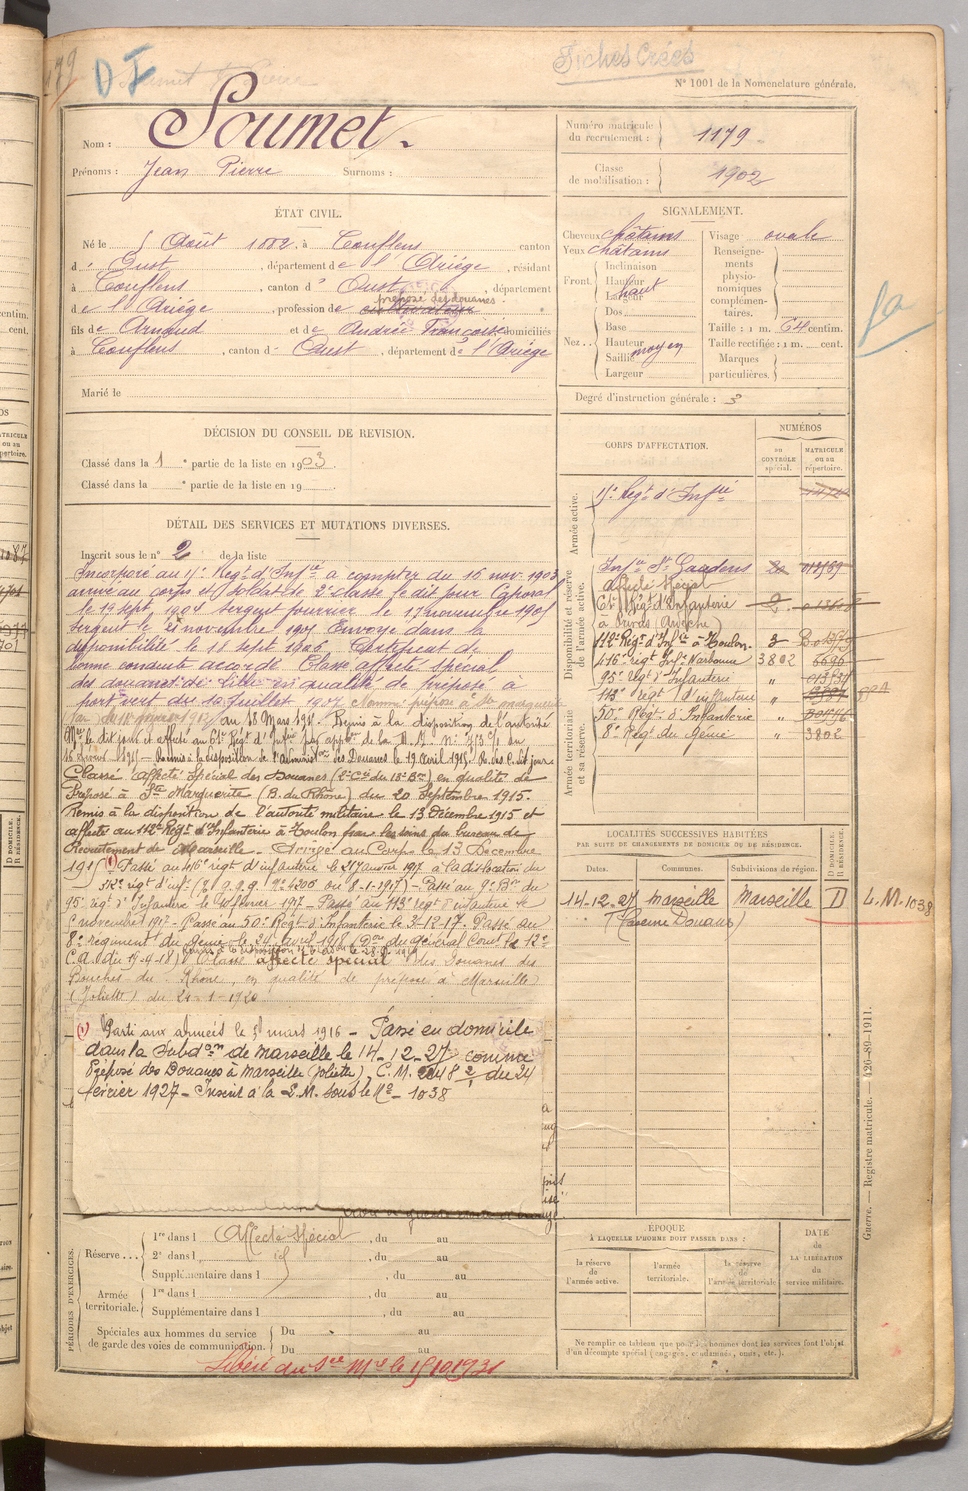 179
D I
Fiches Créés
N° 1001 de la Nomenclature générale.
Nom : Soumet.
Prénoms : Jean Pierre Surnoms :
Numéro matricule du recrutement : 1179.
Classe de mobilisation : 1902
ÉTAT CIVIL.
Né le Août à Couflens canton
d' Oust, département de l'Ariége, résidant
à Couflens, canton d' Oust, département
préposé des douanes.
de l'Ariége, profession de cultivateur
fils de Arnaud et de Andrée Françoise domiciliés
à Couflens, canton d' Oust, département de l'Ariége
Marié le
SIGNALEMENT.
Cheveux châtains Visage ovale
Yeux châtains
Front. Inclinaison
Hauteur haut
Largeur
Nez... Dos
Base
Hauteur moyen
Saillie
Largeur
Renseignements physionomiques complémentaires.
Taille : 1 m. 64 centim.
Taille rectifiée : 1 m. cent.
Marques particulières.
Degré d'instruction générale : 3
DÉCISION DU CONSEIL DE REVISION.
Classé dans la 1e partie de la liste en 1903.
Classé dans la e partie de la liste en 19
DÉTAIL DES SERVICES ET MUTATIONS DIVERSES.
Inscrit sous le n° 2 de la liste
Incorporé au Regt d'Infie à compter du 16 nov. 1903
arrivé au corps et soldat de 2e classe le dit jour Caporal
le 19 sept. 1904 Sergent fourrier le 17 novembre 1905
Sergent le novembre 1905 Envoyé dans la
disponibilité le sept 1906 Certificat de
bonne conduite accordé. Classé affecté spécial
des douanes de en qualité de préposé à
port vert du 10 juillet 1907 Nommé préposé à Ste marguerite
au 15 Mars 1915. Remis à la disposition de l'autorité
Mre le dit jour et affecté au 61e Regt d'Infie
Remis à la disposition de l'administon des Douanes le 19 Avril 1915
Classé affecté Spécial des Douanes (2e Cie du 15e Bon) en qualité de
Préposé à Ste Marguerite (B. du Rhône) du 20 Septembre 1915.
Remis à la disposition de l'autorité militaire le 13 Décembre 1915 et
affecté au 112e Regt d'Infanterie à Toulon par les soins du bureau de
Recrutement de Marseille. Arrivé au Corps le 13 Décembre
1915 (1) Passé au 416e régt d'infanterie le 27 janvier 1917 à la dislocation du
régt d'infie (8-1-1917) - Passé au 9e Bon du
95e régt d'Infanterie le février 1917 - Passé au 113e régt d'infanterie le
novembre 1917 - Passé au 50e Régt d'Infanterie le 3-12-17. Passé au
8e régiment du génie le 24 avril 1918 (Don du général Comt la 12e
C.A. du 19-4-18) Classé affecté spécial des Douanes des
Bouches du Rhône, en qualité de préposé à Marseille
(Joliette) du 20-1-1920
(1) Parti aux armées le mars 1916 - Passé en domicile
dans la Subdon de Marseille le 14-12-27 comme
Préposé des Douanes à Marseille (Joliette) C.M. du 24
février 1927 - Inscrit à la L.M. sous le No 1038
CORPS D'AFFECTATION.
NUMÉROS
au CONTRÔLE spécial.
MATRICULE ou au répertoire.
Armée active.
Regt d'Infie
Disponibilité et réserve de l'armée active.
Infie St Gaudens
affecté spécial
61e Régt d'Infanterie
à Privas (Ardèche)
112e Regt d'Infie à Toulon. 3
416e régt Infie Narbonne 3802 6696
95e régt d'Infanterie "
113e régt d'infanterie "
Armée territoriale et sa réserve.
50e Régt d'Infanterie "
8e Régt du génie " 3802
LOCALITÉS SUCCESSIVES HABITÉES
PAR SUITE DE CHANGEMENTS DE DOMICILE OU DE RÉSIDENCE.
Dates. Communes. Subdivisions de région. D DOMICILE. R RÉSIDENCE.
14-12-27 Marseille Marseille D L.M. 1038
(Caserne Douanes)
Guerre. — Registre matricule. — (26-89-1911.
PÉRIODES D'EXERCICES.
Réserve... 1re dans l Affecté spécial, du au
2e dans l id, du au
Supplémentaire dans l, du au
Armée territoriale. 1re dans l, du au
Supplémentaire dans l, du au
Spéciales aux hommes du service de garde des voies de communication. Du au
Du au
Libéré du Sce Mre le 15 10 1931
ÉPOQUE
À LAQUELLE L'HOMME DOIT PASSER DANS :
la réserve de l'armée active.
l'armée territoriale.
la réserve de l'armée territoriale
DATE de LA LIBÉRATION du service militaire.
Ne remplir ce tableau que pour les hommes dont les services font l'objet
d'un décompte spécial (engagés, condamnés, omis, etc.).